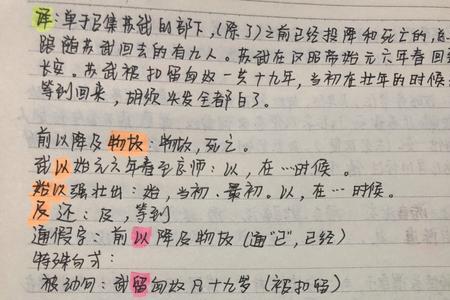 译:单于召集苏武的部下,(除了)之前已经投降和死亡的,总
跟随苏武回去的有九人。苏武在汉昭帝始元六年春回到
长安。苏武被扣留匈奴一共十九年,当初在壮年的时候
等到回来,胡须头发全都白了。
前以降及物故:物故,死亡。
武以始元六年春至京师:以,在…时候。
始以强壮出:始,当初、最初。以,在…时候。
及还:及,等到
通假字:前以降及物故(通"已",已经)
特殊句式:
被动句:武留匈奴凡十九岁(被扣留)